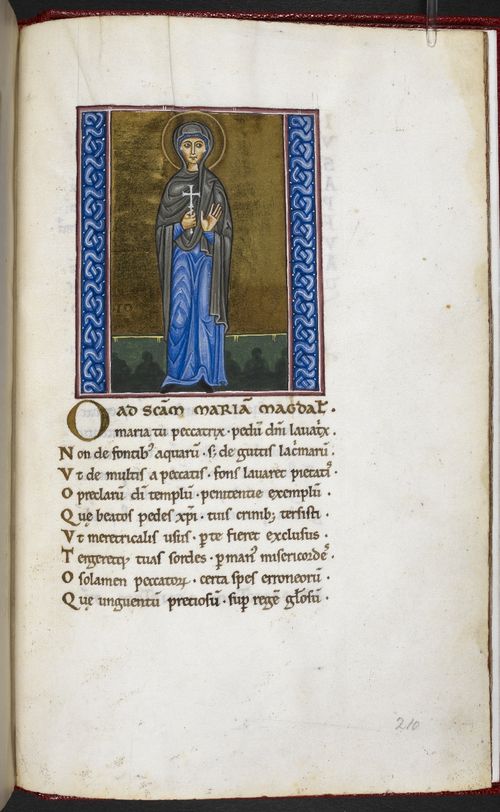 AD SCĀM MARIĀ MAGDAŁ.
O maria tu peccatrix · pedū dn̄i lavatͥx
Non de fontibꝰ aquarū · sꝫ de guttis lacͥmarū
Vt de multis a peccatis · fons lavaret pietatꝭ ·
O preclarū dī templū · penitentie exemplū ·
Quę beatos pedes xp̄i · tuis crinibꝫ tersisti ·
Vt meretricalis usus · p̱ te fieret exclusus ·
Tergeretqꝫ tuas sordes · p̱ manꝰ misericordeˢ ·
O solamen peccatoꝝ · certa spes erroneorū ·
Quę unguentū pretiosū · sup̱ regē głosū ·
210